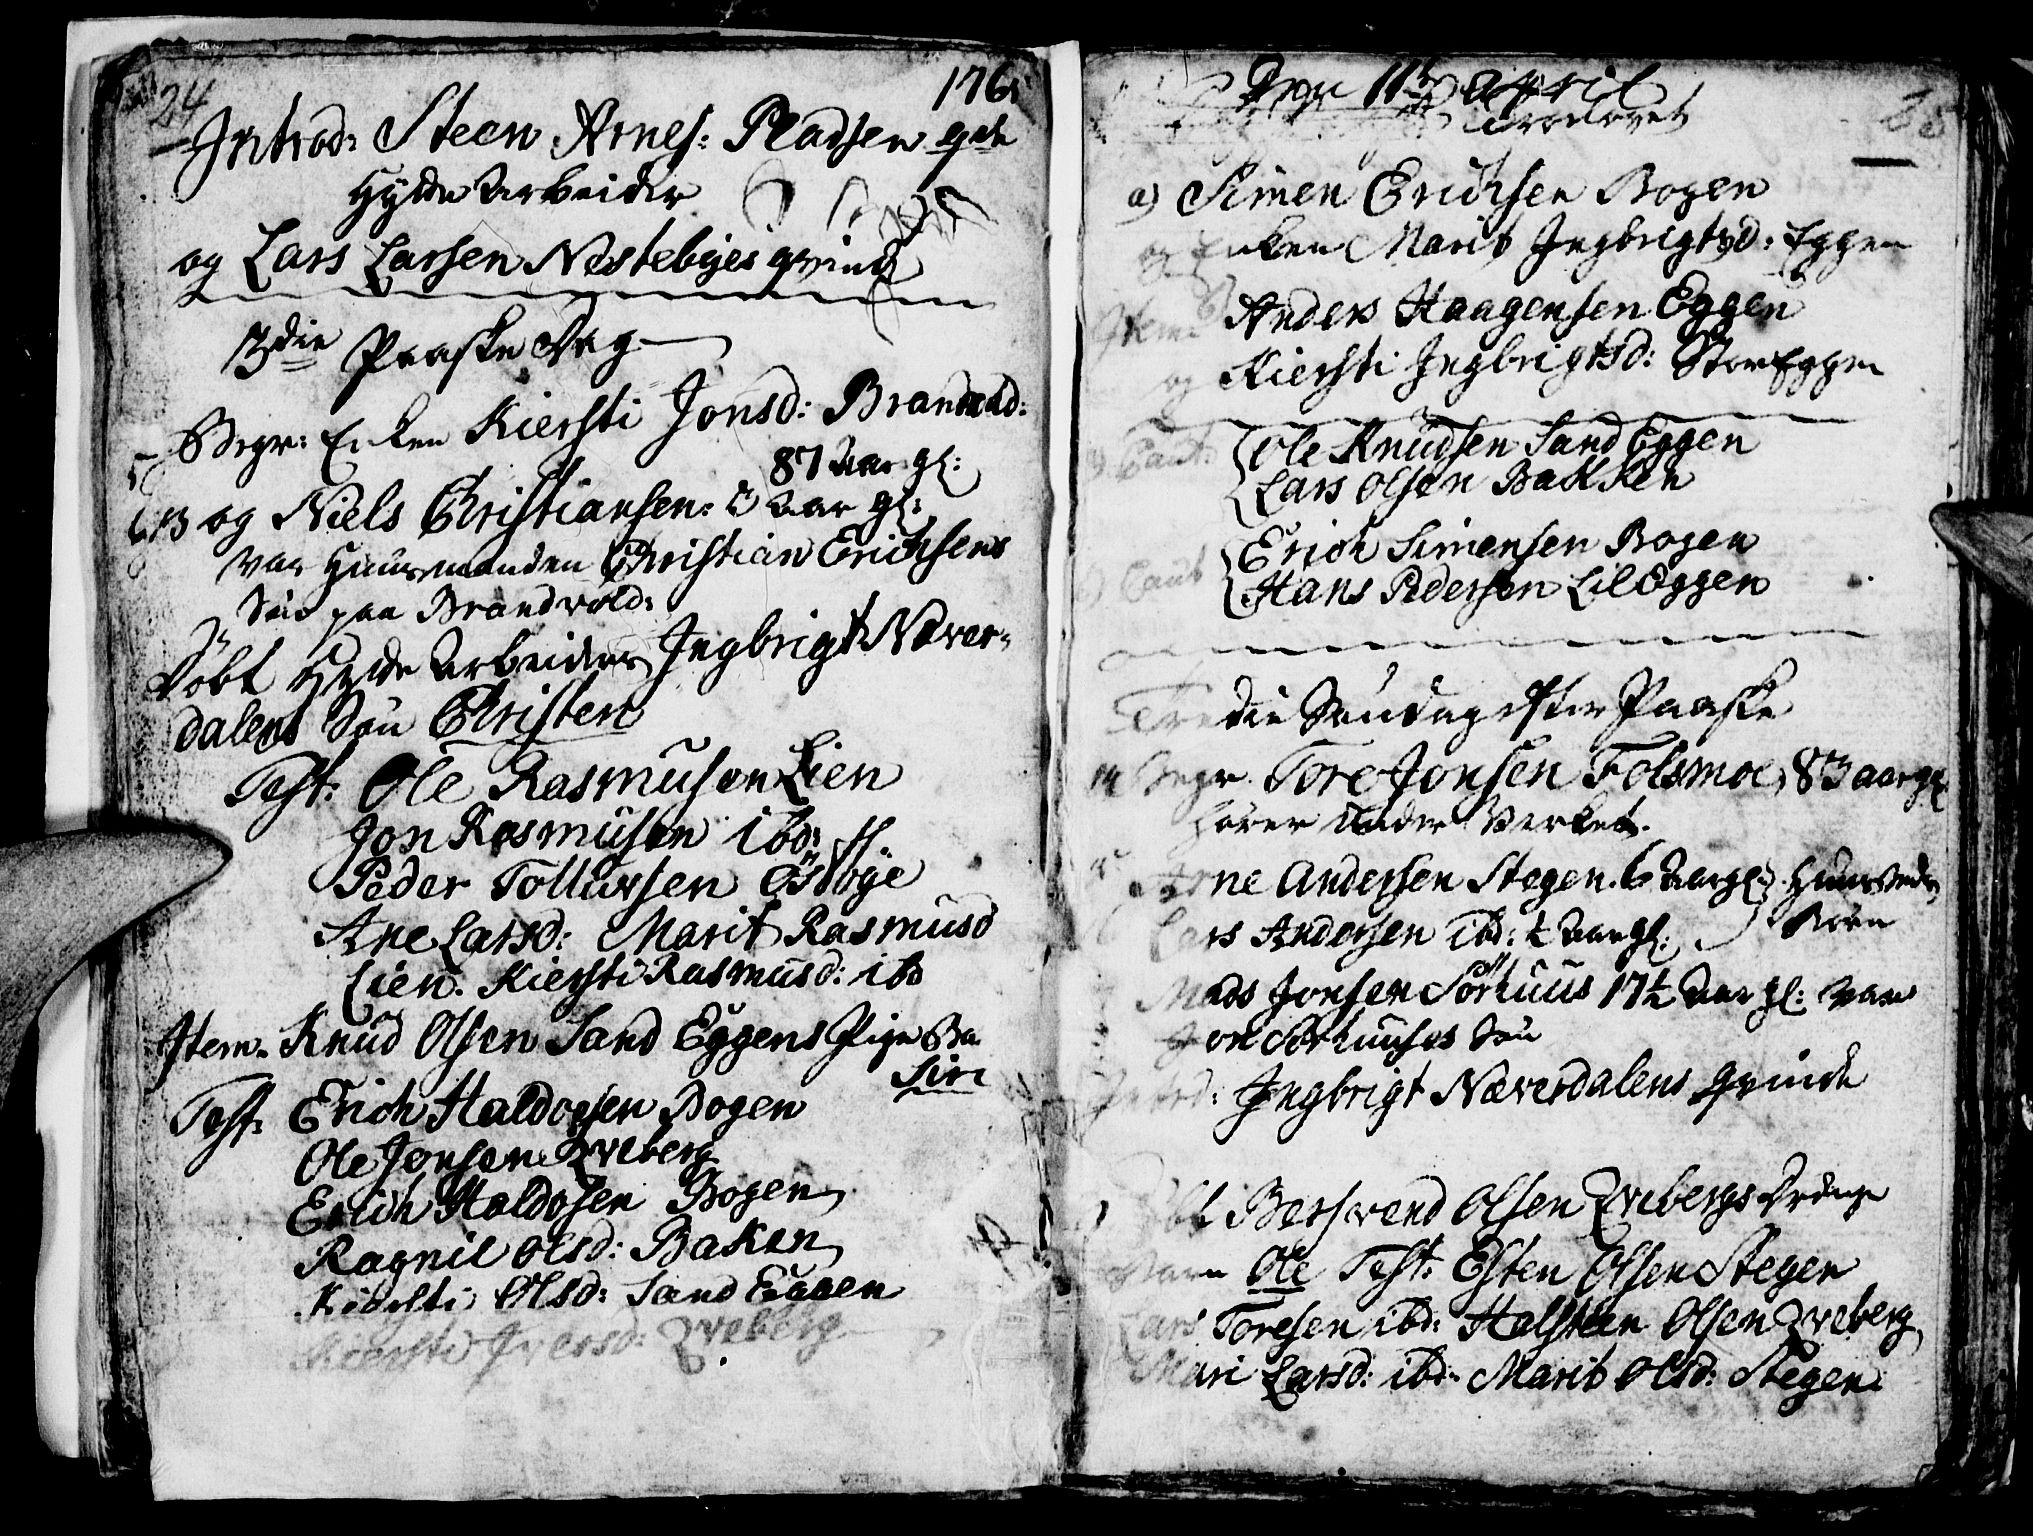 24 176
Introd: Steen Arnes: Pladsen
Hytte Arbeider
og Lars Larsen Nestebyes qvinde
3die Paaske Dag
Begr: Enken Kiersti Jonsd: Brandvold:
87 Aar gl:
og Niels Christiansen: Aar gl:
var Huusmanden Christian Erichsens
Søn paa Brandvold:
Døbt Hytte Arbeider Ingbrigt Næver-
dalens Søn Christen
Test: Ole Rasmusen Lien
Jon Rasmusen ibd:
Peder Tollufsen
Ane Larsd: Marit Rasmusd
Lien. Kiersti Rasmusd: ibd
Item. Knud Olsen Sand Eggens Pige Ba
Siri
Test: Erich Haldorsen Bogen
Ole Jonsen Tveberg
Erich Haldosen Bogen
Ragnil Olsd: Baken
Kiersti Olsd: Sand Eggen
Kiersti Iversd: Tveberg
Den 11te April
Trolovet
a) Simen Erichsen Bogen
og Enken Marit Ingbrigtsd: Eggen
Item Anders Haagensen Eggen
og Kiersti Ingbrigtsd: StorEggen
Caut: Ole Knudsen Sand Eggen
Lars Olsen Bakken
Caut Erich Simensen Bogen
Hans Pedersen LilEggen
Tredie Søndag efter Paaske
Begr Tore Jonsen Folsmoe, 83 aar gl
hører under Verket.
Arne Andersen Stegen. 6 Aar gl:
Lars Andersen ibd: ½ Aar gl:
Mads Jonsen Sørhuus 17½ Aar gl: var
Jon Sørhuuses Søn
Introd: Ingbrigt Næverdalens qvinde
Døbt Bersvend Olsen Tvebergs Drenge
Barn Ole Test: Esten Olsen Stegen
Lars Toresen ibd: Halsteen Olsen Tveberg
Mari Larsd: ibd: Marit Olsd: Stegen.